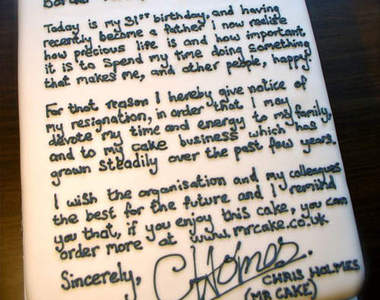 Today is my 31st birthday, and having
recently become a father I now realise
how precious life is and how important
it is to spend my time doing something
that makes me, and other people, happy.
For that reason I hereby give notice of
my resignation, in order that I may
devote my time and energy to my family,
and to my cake business which has
grown steadily over the past few years.
I wish the organisation and my colleagues
the best for the future and I remind
you that, if you enjoy this cake, you can
order more at www.mrcake.co.uk
Sincerely,
CHolmes
CHRIS HOLMES
(MR CAKE)